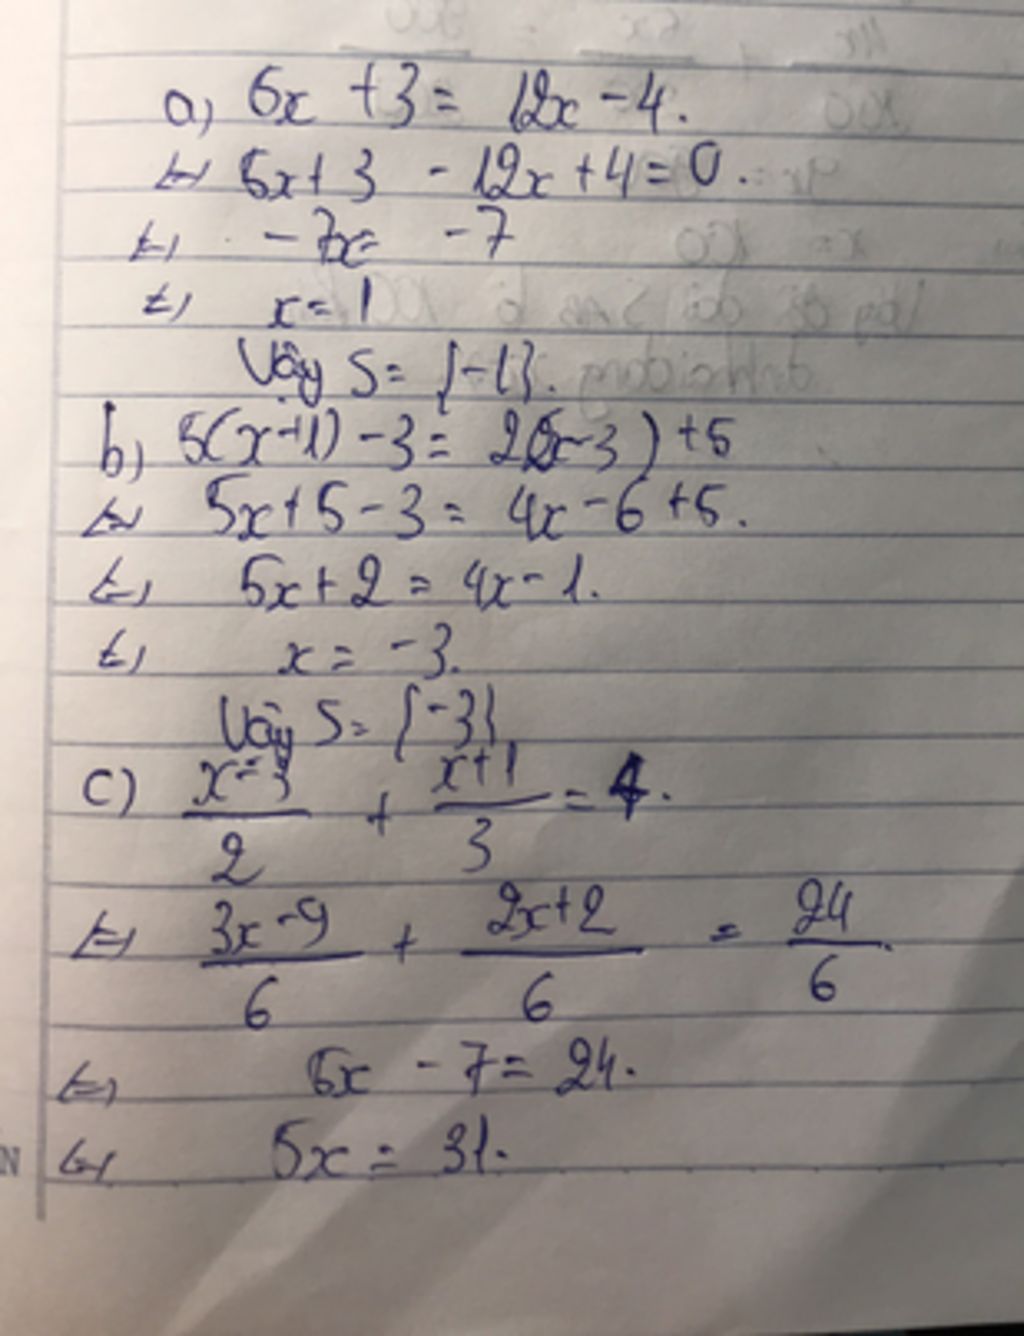 a, 5x + 3 = 12x - 4.
<=> 5x + 3 - 12x + 4 = 0.
<=> - 7x = - 7
<=> x = 1
Vậy S = {-1}.
b, 5(x+1) - 3 = 2(2x-3) + 5
<=> 5x + 5 - 3 = 4x - 6 + 5.
<=> 5x + 2 = 4x - 1.
<=> x = -3.
Vậy S = {-3}
c) x-3/2 + x+1/3 = 4.
<=> 3x-9/6 + 2x+2/6 = 24/6
<=> 5x - 7 = 24.
<=> 5x = 31.
N